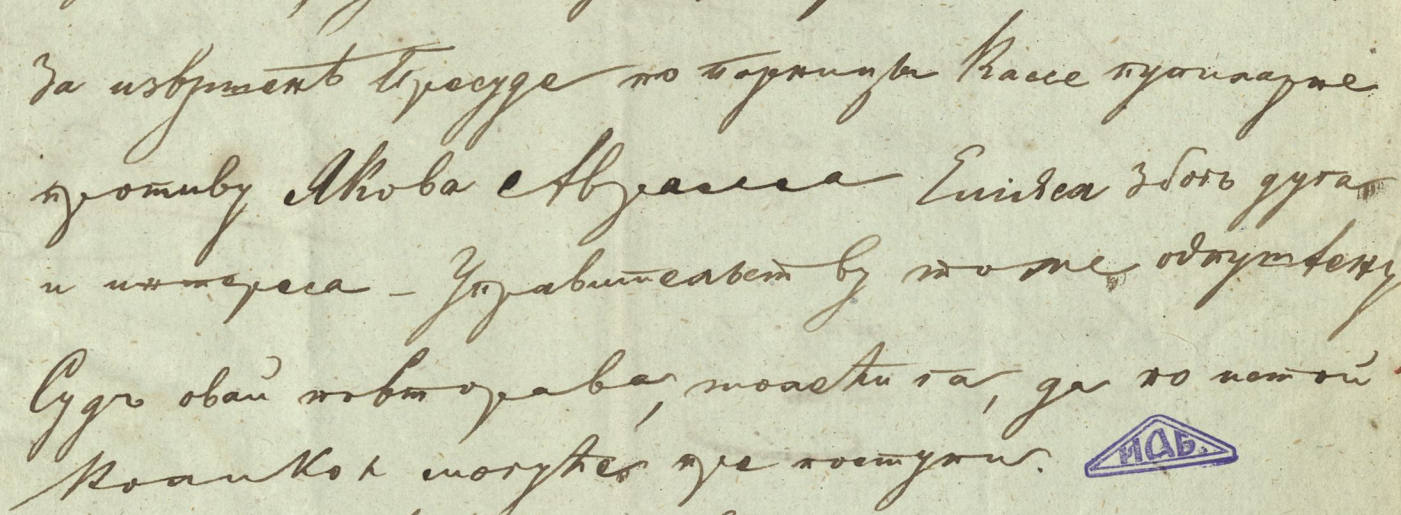 За извршенѣ Пресуде по парници Кассе пупиларне
противу Якова Аврама Ешіяса збогъ дуга
и интереса – Управителству томе одпуштену
Судъ овай повторава, молећи га, да по истой
колико є могуће пре поступи.
ИАБ.